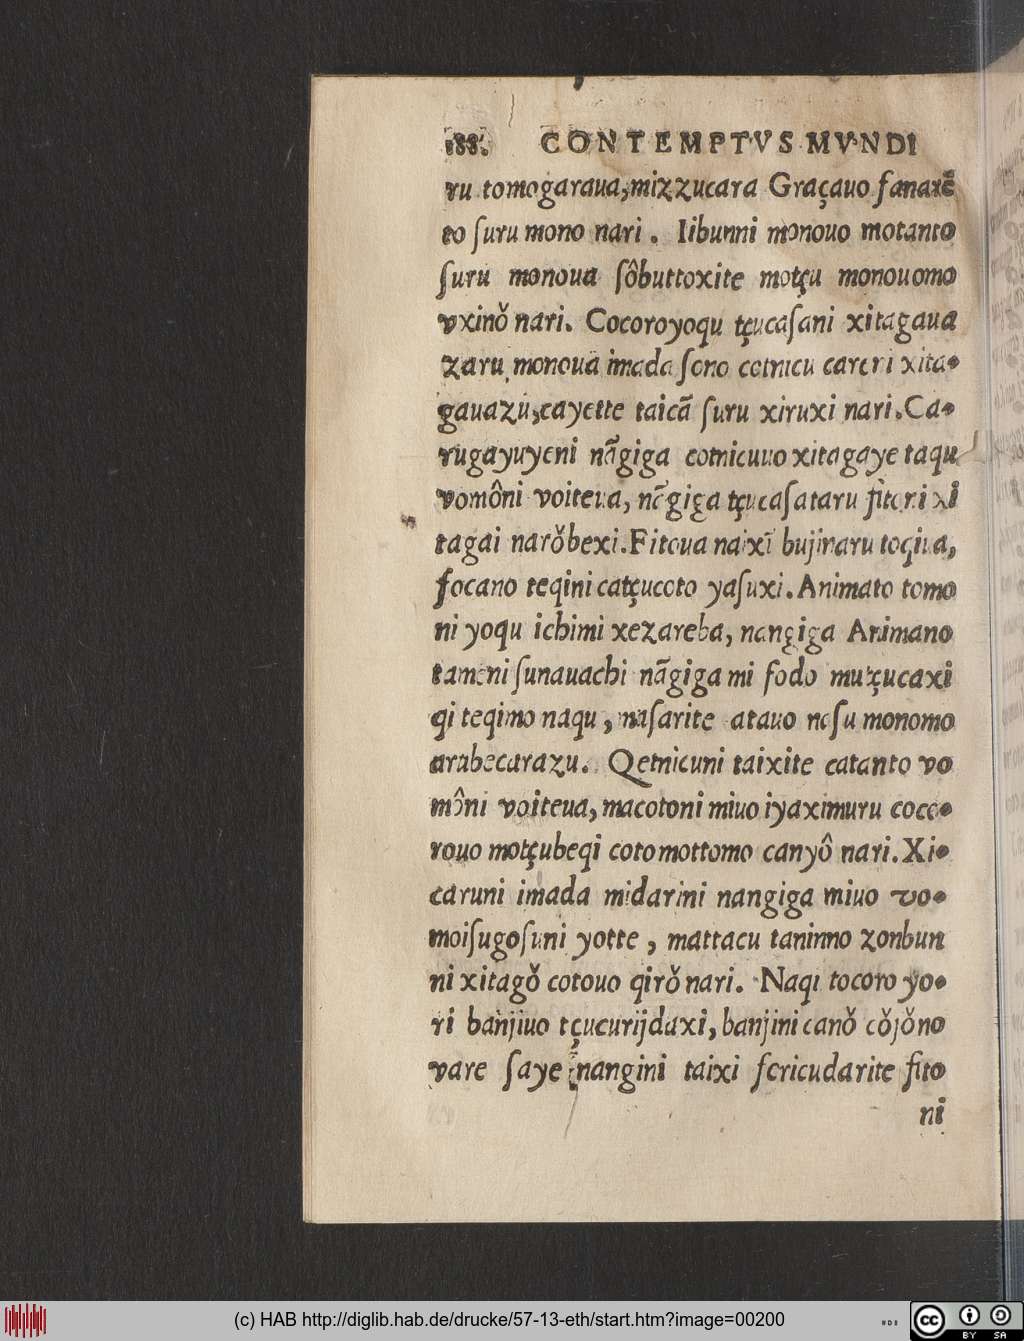 188. CONTEMPTVS MVNDI
ru tomogaraua, mizzucara Graçauo fanarẽ
to ſuru mono nari. Iibunni monouo motanto
ſuru monoua ſôbuttoxite motçu monouomo
vxinŏ nari. Cocoroyoqu tçucaſani xitagaua
zaru monoua imada ſono cotnicu careni xita-
gauazu, cayette taicã ſuru xiruxi nari. Ca-
rugayuyeni nãgiga cotnicuuo xitagaye taqu
vomôni voiteua, nãgiga tçucaſataru fitoni xi
tagai narŏbexi. Fitoua naixi bujinaru toqiua,
focano teqini catçucoto yaſuxi. Animato tomo
ni yoqu ichimi xezareba, nangiga Animano
tameni ſunauachi nãgiga mi fodo mutçucaxi
qi teqimo naqu, naſarite atauo neſu monomo
arubecarazu. Qetnicuni taixite catanto vo
môni voiteua, macotoni miuo iyaximuru coco-
rouo motçubeqi coto mottomo canyô nari. Xi-
caruni imada midarini nangiga miuo vo-
moiſugoſuni yotte, mattacu taninno zonbun
ni xitagŏ cotouo qirŏ nari. Naqi tocoro yo-
ri banjiuo tçucurijdaxi, banjini canŏ cŏjŏno
vare ſaye nangini taixi fericudarite fito
ni
(c) HAB http://diglib.hab.de/drucke/57-13-eth/start.htm?image=00200
cc BY SA